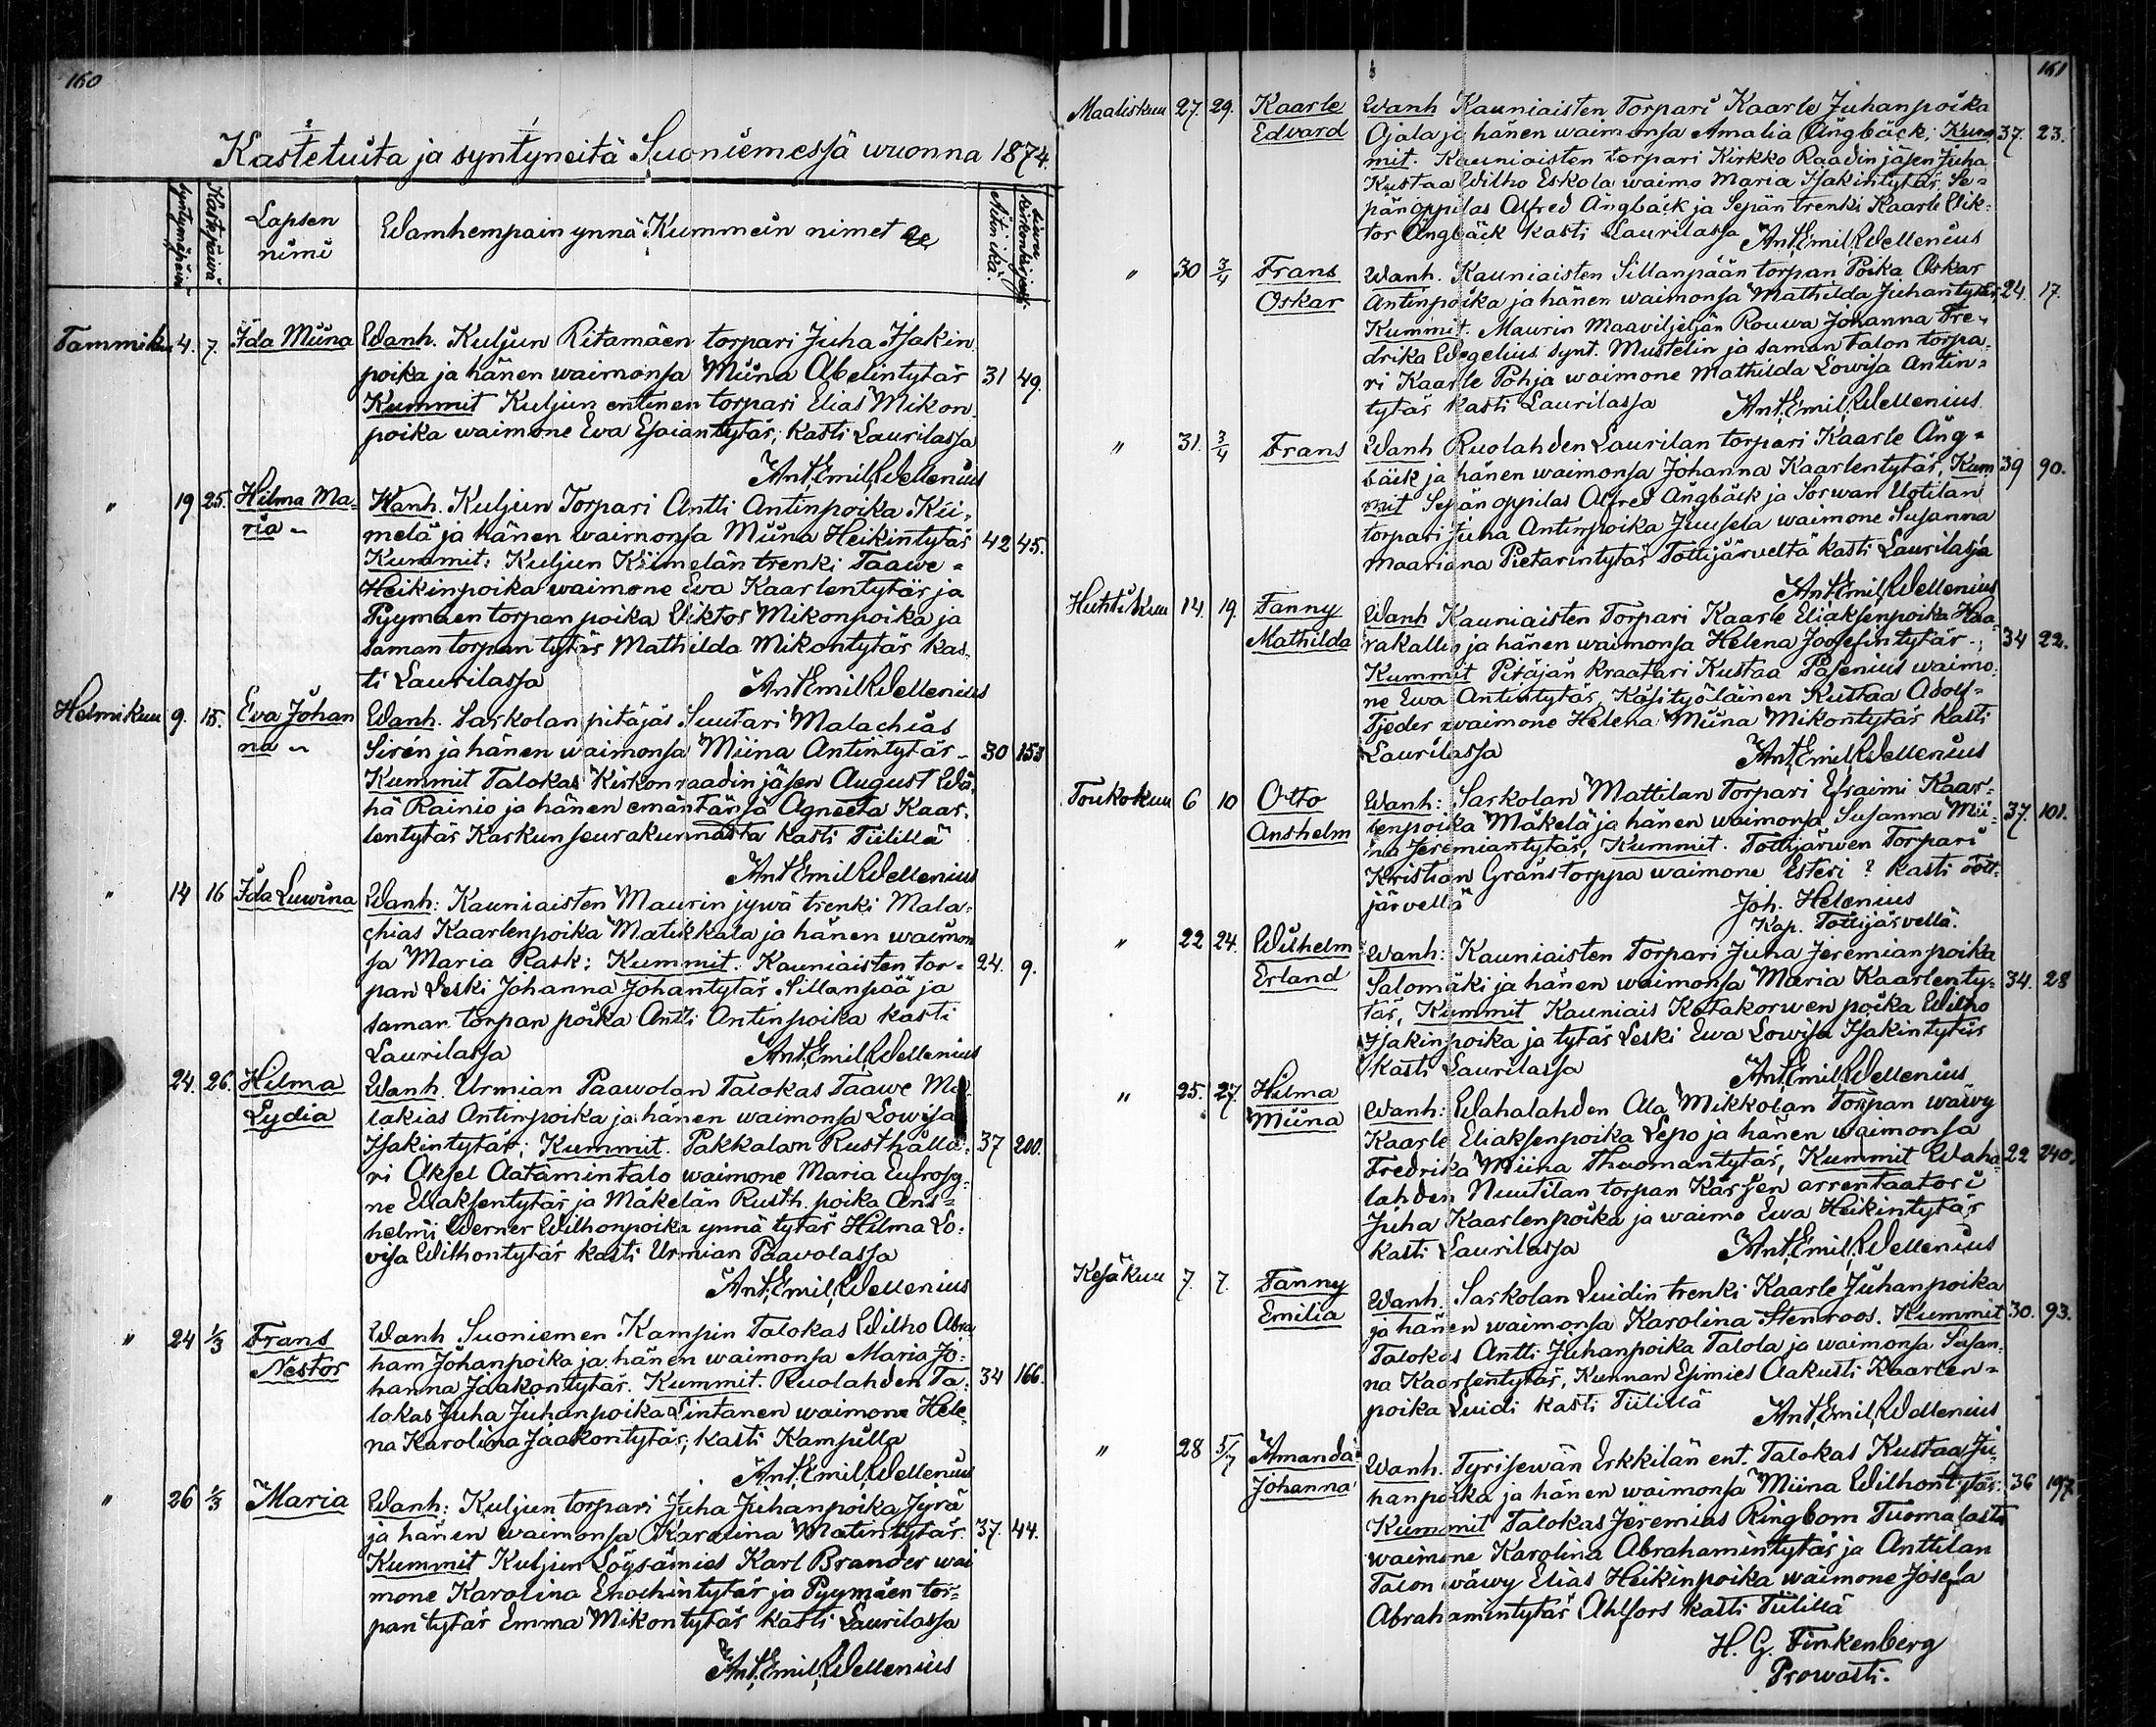 160
Kastetuita ja syntyneitä Suoniemessä wuonna 1874.
2 1
syntymäpäivä
Kastepäivä
Lapsen nimi
Wamhempain ynnä Kummein nimet
Äitin ikä.
Tammiku 4. 7. Ida Miina Wanh. Kuljun Ritamäen torpari Juha Isakin
poika ja hänen waimonsa Miina Abelintytär 31 49.
Kummit Kuljun entinen torpari Elias Mikon
poika waimone Ewa Esaiantytär; kasti Laurilassa
Ant. Emil. Wellenius
" 19 25. Hilma Ma- Wanh. Kuljun Torpari Antti Antinpoika Kii-
ria melä ja hänen waimonsa Miina Heikintytär 42 45.
Kummit: Kuljun Kiimelän trenki Taawe-
Heikinpoika waimone Ewa Kaarlentytär ja
Pyymäen torpan poika Wiktor Mikonpoika ja
saman torpan tytär Mathilda Mikontytär kas-
ti Laurilassa Ant Emil Wellenius
Helmikuu 9. 15. Eva Johan Wanh. Sarkolan pitäjäs Suutari Malachias
na Sirén ja hänen waimonsa Miina Antintytär 30 153
Kummit Talokas Kirkonraadin jäsen August Wä-
hä Rainio ja hänen emäntänsä Agneeta Kaar-
lentytär Karkun seurakunnasta kasti Tiilillä
Ant Emil Wellenius
" 14 16 Ida Luwina Wanh: Kauniaisten Maurin jywä trenki Mala-
chias Kaarlenpoika Matikkala ja hänen waimon
sa Maria Rask: Kummit: Kauniaisten tor- 24. 9.
pan Leski Johanna Johantytär Sillanpää ja
saman torpan poika Antti Antinpoika kasti
Laurilassa Ant. Emil. Wellenius
24. 26. Hilma Wanh. Urmian Paawolan Talokas Taawe Ma-
Lydia lakias Antinpoika ja hänen waimonsa Lowisa
Isakintytär; Kummit. Pakkalan Rusthålla- 37 200.
ri Aksel Aatamintalo waimone Maria Eufrosy-
ne Eliaksentytär ja Mäkelän Rusth. poika Ans-
helmi Werner Wilhonpoika ynnä tytär Hilma Lo-
visa Wilhontytär kasti Urmian Paavolassa
Ant. Emil. Wellenius
" 24 1/3 Frans Wanh Suoniemen Kampin Talokas Wilho Abra
Nestor ham Johanpoika ja hänen waimonsa Maria Jo-
hanna Jaakontytär. Kummit. Ruolahden Ta- 34 166.
lokas Juha Juhanpoika Lintanen waimone Hele-
na Karolina Jaakontytär; kasti Kampilla
Ant. Emil. Wellenius
" 26 1/3 Maria Wanh: Kuljun torpari Juha Juhanpoika Jyrä
ja hänen waimonsa Karoliina Matintytär. 37. 44.
Kummit Kuljun Löysämies Karl Brander wai
mone Karolina Enochintytär ja Pyymäen tor-
pan tytär Emma Mikontytär kasti Laurilassa
Ant. Emil. Wellenius
161
Maaliskuu 27. 29. Kaarle Wanh Kauniaisten Torpari Kaarle Juhanpoika
Edvard Ojala ja hänen waimonsa Amalia Ångbäck; Kum 37. 23.
mit. Kauniaisten torpari Kirkko Raadin jäsen Juha
Kustaa Wilho Eskola waimo Maria Isakintytär Se-
pän oppilas Alfred Ångbäck ja Sepän trenki Kaarle Wik-
tor Ångbäck kasti Laurilassa Ant. Emil. Wellenius
" 30 3/4 Frans Wanh. Kauniaisten Sillanpään torpan Poika Oskar
Oskar Antinpoika ja hänen waimonsa Mathilda Juhantytär 24. 17.
Kummit. Maurin Maaviljeljän Rouwa Johanna Fre-
drika Wegelius synt. Mustelin ja saman talon torpa-
ri Kaarle Pohja waimone Mathilda Lowisa Antin-
tytär kasti Laurilassa Ant. Emil. Wellenius
" 31. 3/4 Frans Wanh Ruolahden Laurilan torpari Kaarle Ång-
bäck ja hänen waimonsa Johanna Kaarlentytär, Kum 39 90.
mit Sepän oppilas Alfred Ångbäck ja Sorwan Uotilan
torpari Juha Antinpoika Juusela waimone Susanna
Maariana Pietarintytär Tottijärveltä kasti Laurilassa
Ant Emil Wellenius
Huhtikuu 14. 19. Fanny Wanh Kauniaisten Torpari Kaarle Eliaksenpoika Haa-
Mathilda rakallio ja hänen waimonsa Helena Joosefintytär 34 22.
Kummit Pitäjän Kraatari Kustaa Pasenius waimo-
ne Ewa Antintytär, Käsityöläinen Kustaa Adolf-
Tjeder waimone Helena Miina Mikontytär kasti
Laurilassa Ant. Emil. Wellenius
Toukokuu 6 10 Otto Wanh: Sarkolan Mattilan Torpari Efraimi Kaar-
Anshelm lenpoika Mäkelä ja hänen waimonsa Susanna Mii- 37. 101.
na Jeremiantytär, Kummit. Tottijärwen Torpari
Kristian Gränstorppa waimone Esteri? kasti Totti-
järvellä Joh. Helenius
Kap. Tottijärvellä.
" 22 24. Wilhelm Wanh: Kauniaisten Torpari Juha Jeremianpoika
Erland Salomäki ja hänen waimonsa Maria Kaarlenty- 34. 28
tär, Kummit Kauniais Kotakorwen poika Wilho
Isakinpoika ja tytär Leski Ewa Lowisa Isakintytär
kasti Laurilassa Ant. Emil. Wellenius
" 25. 27. Hilma Wanh: Wahalahden Ala Mikkolan Torpan wäwy
Miina Kaarle Eliaksenpoika Lepo ja hänen waimonsa
Fredrika Miina Thuomantytär, Kummit Waha- 22 240.
lahden Nuutilan torpan Kärsen arrentaatori
Juha Kaarlenpoika ja waimo Ewa Heikintytär
kasti Laurilassa Ant. Emil. Wellenius
Kesäkuu 7. 7. Fanny Wanh. Sarkolan Luidin trenki Kaarle Juhanpoika
Emilia ja hänen waimonsa Karolina Stenroos. Kummit 30. 93.
Talokas Antti Juhanpoika Talola ja waimonsa Susan-
na Kaarlentytär, Kunnan Esimies Aakusti Kaarlen-
poika Luidi kasti Tiilillä Ant. Emil. Wellenius
" 28 5/7 Amanda Wanh. Tyrisewän Erkkilän ent. Talokas Kustaa Ju-
Johanna hanpoika ja hänen waimonsa Miina Wilhontytär. 36 197
Kummit Talokas Jeremias Ringbom Tuomalasta
waimone Karolina Abrahamintytär ja Anttilan
Talon wäwy Elias Heikinpoika waimone Josefa
Abrahamintytär Ahlfors kasti Tiilillä
H. G. Finkenberg
Prowasti.